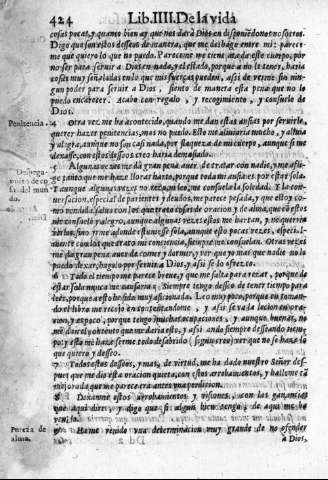 424 Lib. IIII. De la vida
cosas pocas, y quanto bien ay que nos dará Dios en disponiendonos nosotros.
Digo que son estos desseos de manera, que me deshago entre mi: pareceme
que quiero lo que no puedo. Pareceme me tiene atada este cuerpo, por
no ser para seruir a Dios en nada, y el estado, porque a no le tener, haria
cosas muy señaladas en lo que mis fuerças pueden, assi de verme sin ningun
poder para seruir a Dios, siento de manera esta pena que no lo
puedo encarecer. Acabo con regalo, y recogimiento, y consuelo de
Dios.
Penitencia. 4 Otra vez, me ha acontecido, quando me dan estas ansias por seruirle,
querer hazer penitencias, mas no puedo. Esto me aliuiaria mucho, y aliuia
y alegra, aunque no son casi nada, por flaqueza de mi cuerpo, aunque si me
dexasse, con estos desseos creo haria demasiado.
Algunas vezes me da gran pena auer de tratar con nadie, y me aflige
tanto que me haze llorar harto, porque toda mi ansia es por estar sola,
y aunque algunas vezes no rezo, ni leo, me consuela la soledad. Y la conuersacion,
especial de parientes y deudos, me parece pesada, y que estoy como
vendida, saluo con los que trato cosas de oracion y de alma, que con estos
me consuelo y alegro, aunque algunas vezes estos me hartan, y no querria
verlos, sino yr me adonde estuuiesse sola, aunque esto pocas vezes, especialmente
con los que trato mi conciencia, siempre me consuelan. Otras vezes
me da gran pena auer de comer y dormir, y ver que yo mas que nadie no lo
puedo dexar, hagolo por seruir a Dios, y assi se lo ofrezco.
6 Todo el tiempo me parece breue, y que me falta para rezar, porque de
estar sola nunca me cansaria. Siempre tengo desseo de tener tiempo para
leer, porque a esto he sido muy aficionada. Leo muy poco, porque en tomando
el libro me recojo en contentandome, y assi se va la lecion en oracion,
y es poco, porque tengo muchas ocupaciones, y aunque buenas, no
me dan el contento que me daria esto, y assi ando siempre desseando tiempo;
y esto me haze serme todo desabrido (segun creo) ver que no se haze lo
que quiero y desseo.
7 Todos estos desseos, y mas, de virtud, me ha dado nuestro Señor despues
que me dio esta oracion quieta, con estos arrobamientos, y hallome tan
mejorada que me parece era antes vna perdicion.
8 Dexanme estos arrobamientos y visiones, con las ganancias
que aqui dire, y digo que si algun bien tengo, de aqui me ha
venido.
Pureza de alma. 9 Hame venido vna determinacion muy grande de no ofender
a Dios,